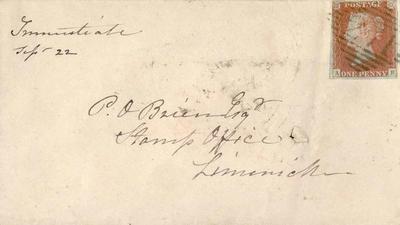 Immediate
Sept 22
POSTAGE
ONE PENNY
P. O Brien Esqr
Stamp Office
Limerick